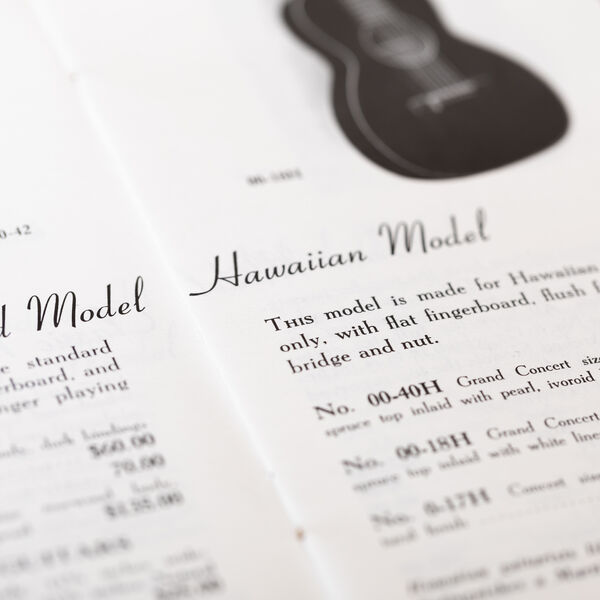 0-42
d Model
e standard
erboard, and
nger playing
$60.00
70.00
$125.00
Hawaiian Model
THIS model is made for Hawaiian
only, with flat fingerboard, flush f
bridge and nut.
No. 00-40H Grand Concert size
spruce top inlaid with pearl, ivoroid
No. 00-18H Grand Concert
spruce top inlaid with white lines
No. 0-17H Concert size